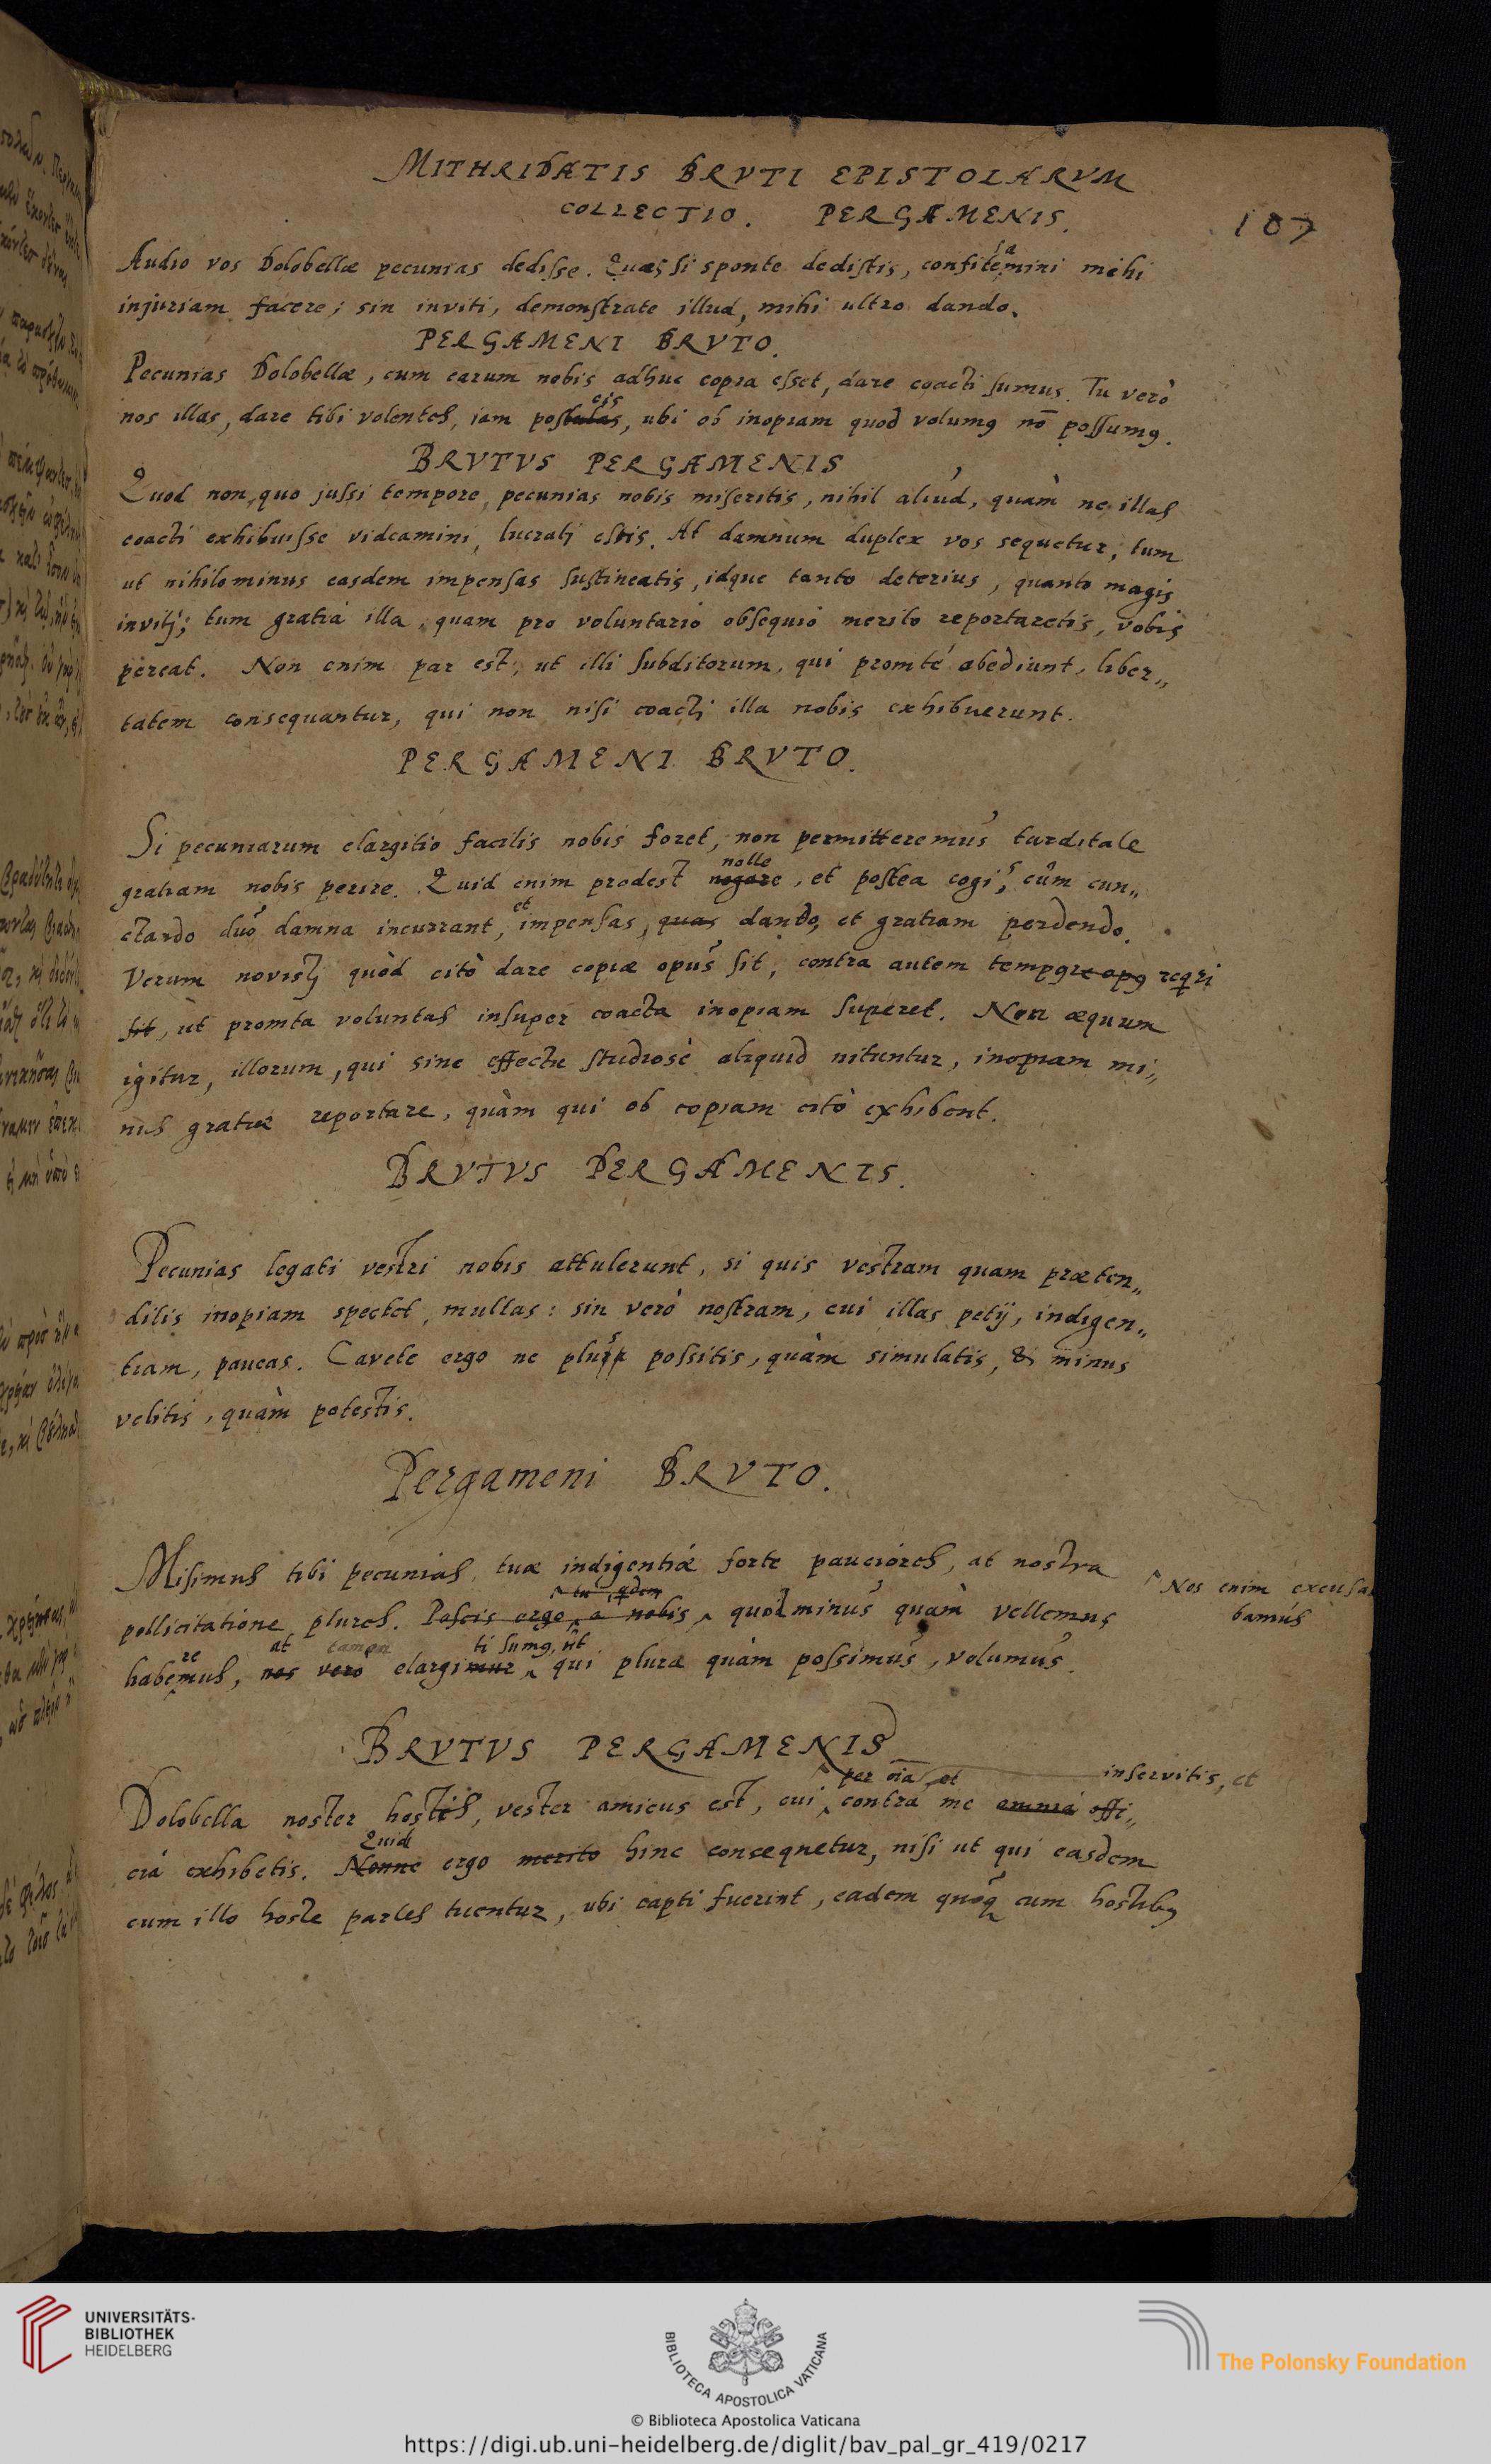 MITHRIDATIS BRVTI EPISTOLARVM
COLLECTIO. PERGAMENIS.
107
Audio vos Dolobellæ pecunias dedisse. Quas si sponte dedistis, confitemini mihi
injuriam facere; sin inviti, demonstrate illud, mihi ultro dando.
PERGAMENI BRVTO.
Pecunias Dolobellæ, cum earum nobis adhuc copia esset, dare coacti sumus. Tu verò
cis
nos illas, dare tibi volentes, iam postulas, ubi ob inopiam quod volumꝰ nō possumꝰ.
BRVTVS PERGAMENIS
Quod non, quo jussi tempore, pecunias nobis miseritis, nihil aliud, quàm ne illas
coacti exhibuisse videamini, lucrati estis. At damnum duplex vos sequetur, tum
ut nihilominus easdem impensas sustineatis, idque tanto deterius, quanto magis
inviti; tum gratia illa, quam pro voluntario obsequio merito reportaretis, vobis
pereat. Non enim par est, ut illi subditorum, qui promtè obediunt, liber„
tatem consequantur, qui non nisi coacti illa nobis exhibuerunt.
PERGAMENI BRVTO.
Si pecuniarum elargitio facilis nobis foret, non permitteremus tarditate
nolle
gratiam nobis perire. Quid enim prodest negare, et postea cogi, cùm cun„
et
ctando duo damna incurrant, impensas, quas dando, et gratiam perdendo.
Verum novisti quòd citò dare copiæ opus sit, contra autem tempꝰre opꝰ reqri
sit, ut promta voluntas insuper coacta inopiam superet. Non æquum
igitur, illorum, qui sine effectu studiosè aliquid nituntur, inopiam mi„
nus gratiæ reportare, quàm qui ob copiam citò exhibent.
BRVTVS PERGAMENIS.
Pecunias legati vestri nobis attulerunt, si quis vestram quam præten„
ditis inopiam spectet, multas: sin verò nostram, cui illas petij, indigen„
tiam, paucas. Cavete ergo ne plus possitis, quàm simulatis, & minus
velitis, quàm potestis.
Pergameni BRVTO.
Misimus tibi pecunias, tuæ indigentiæ forte pauciores, at nostra
Nos enim excusa
bamus
tu qdem
pollicitatione plures. Poscis ergo a nobis, quod minus quàm vellemus
re at tamen ti sumꝰ, ut
habemus, nos vero elargimur qui plura quàm possimus, volumus.
BRVTVS PERGAMENIS
per oīa et inservitis, et
Dolobella noster hostis, vester amicus est, cui contra me omnia offi„
Quid
cia exhibetis. Nonne ergo merito hinc consequetur, nisi ut qui easdem
cum illo hoste partes tuentur, ubi capti fuerint, eadem quoqꝫ cum hostibꝰ
UNIVERSITÄTS-
BIBLIOTHEK
HEIDELBERG
BIBLIOTECA APOSTOLICA VATICANA
The Polonsky Foundation
© Biblioteca Apostolica Vaticana
https://digi.ub.uni-heidelberg.de/diglit/bav_pal_gr_419/0217